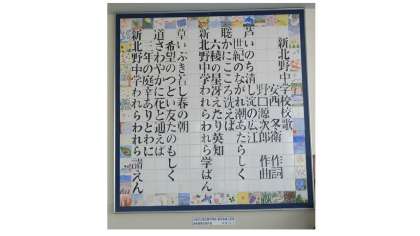 新北野中学校校歌
安西 冬衛 作詞
野口源次郎 作曲
若いのち清し淀の広江
世紀のながれ潮あたらしく
聡かにこころ洗えば
六稜の星冴えたり英知
新北野中学われらわれら学ばん
草いぶきさむし春の朝
希望のつどい友たのもしく
道さわやかに花と通えば
三年の庭幸ありとわに
新北野中学われらわれら讃えん